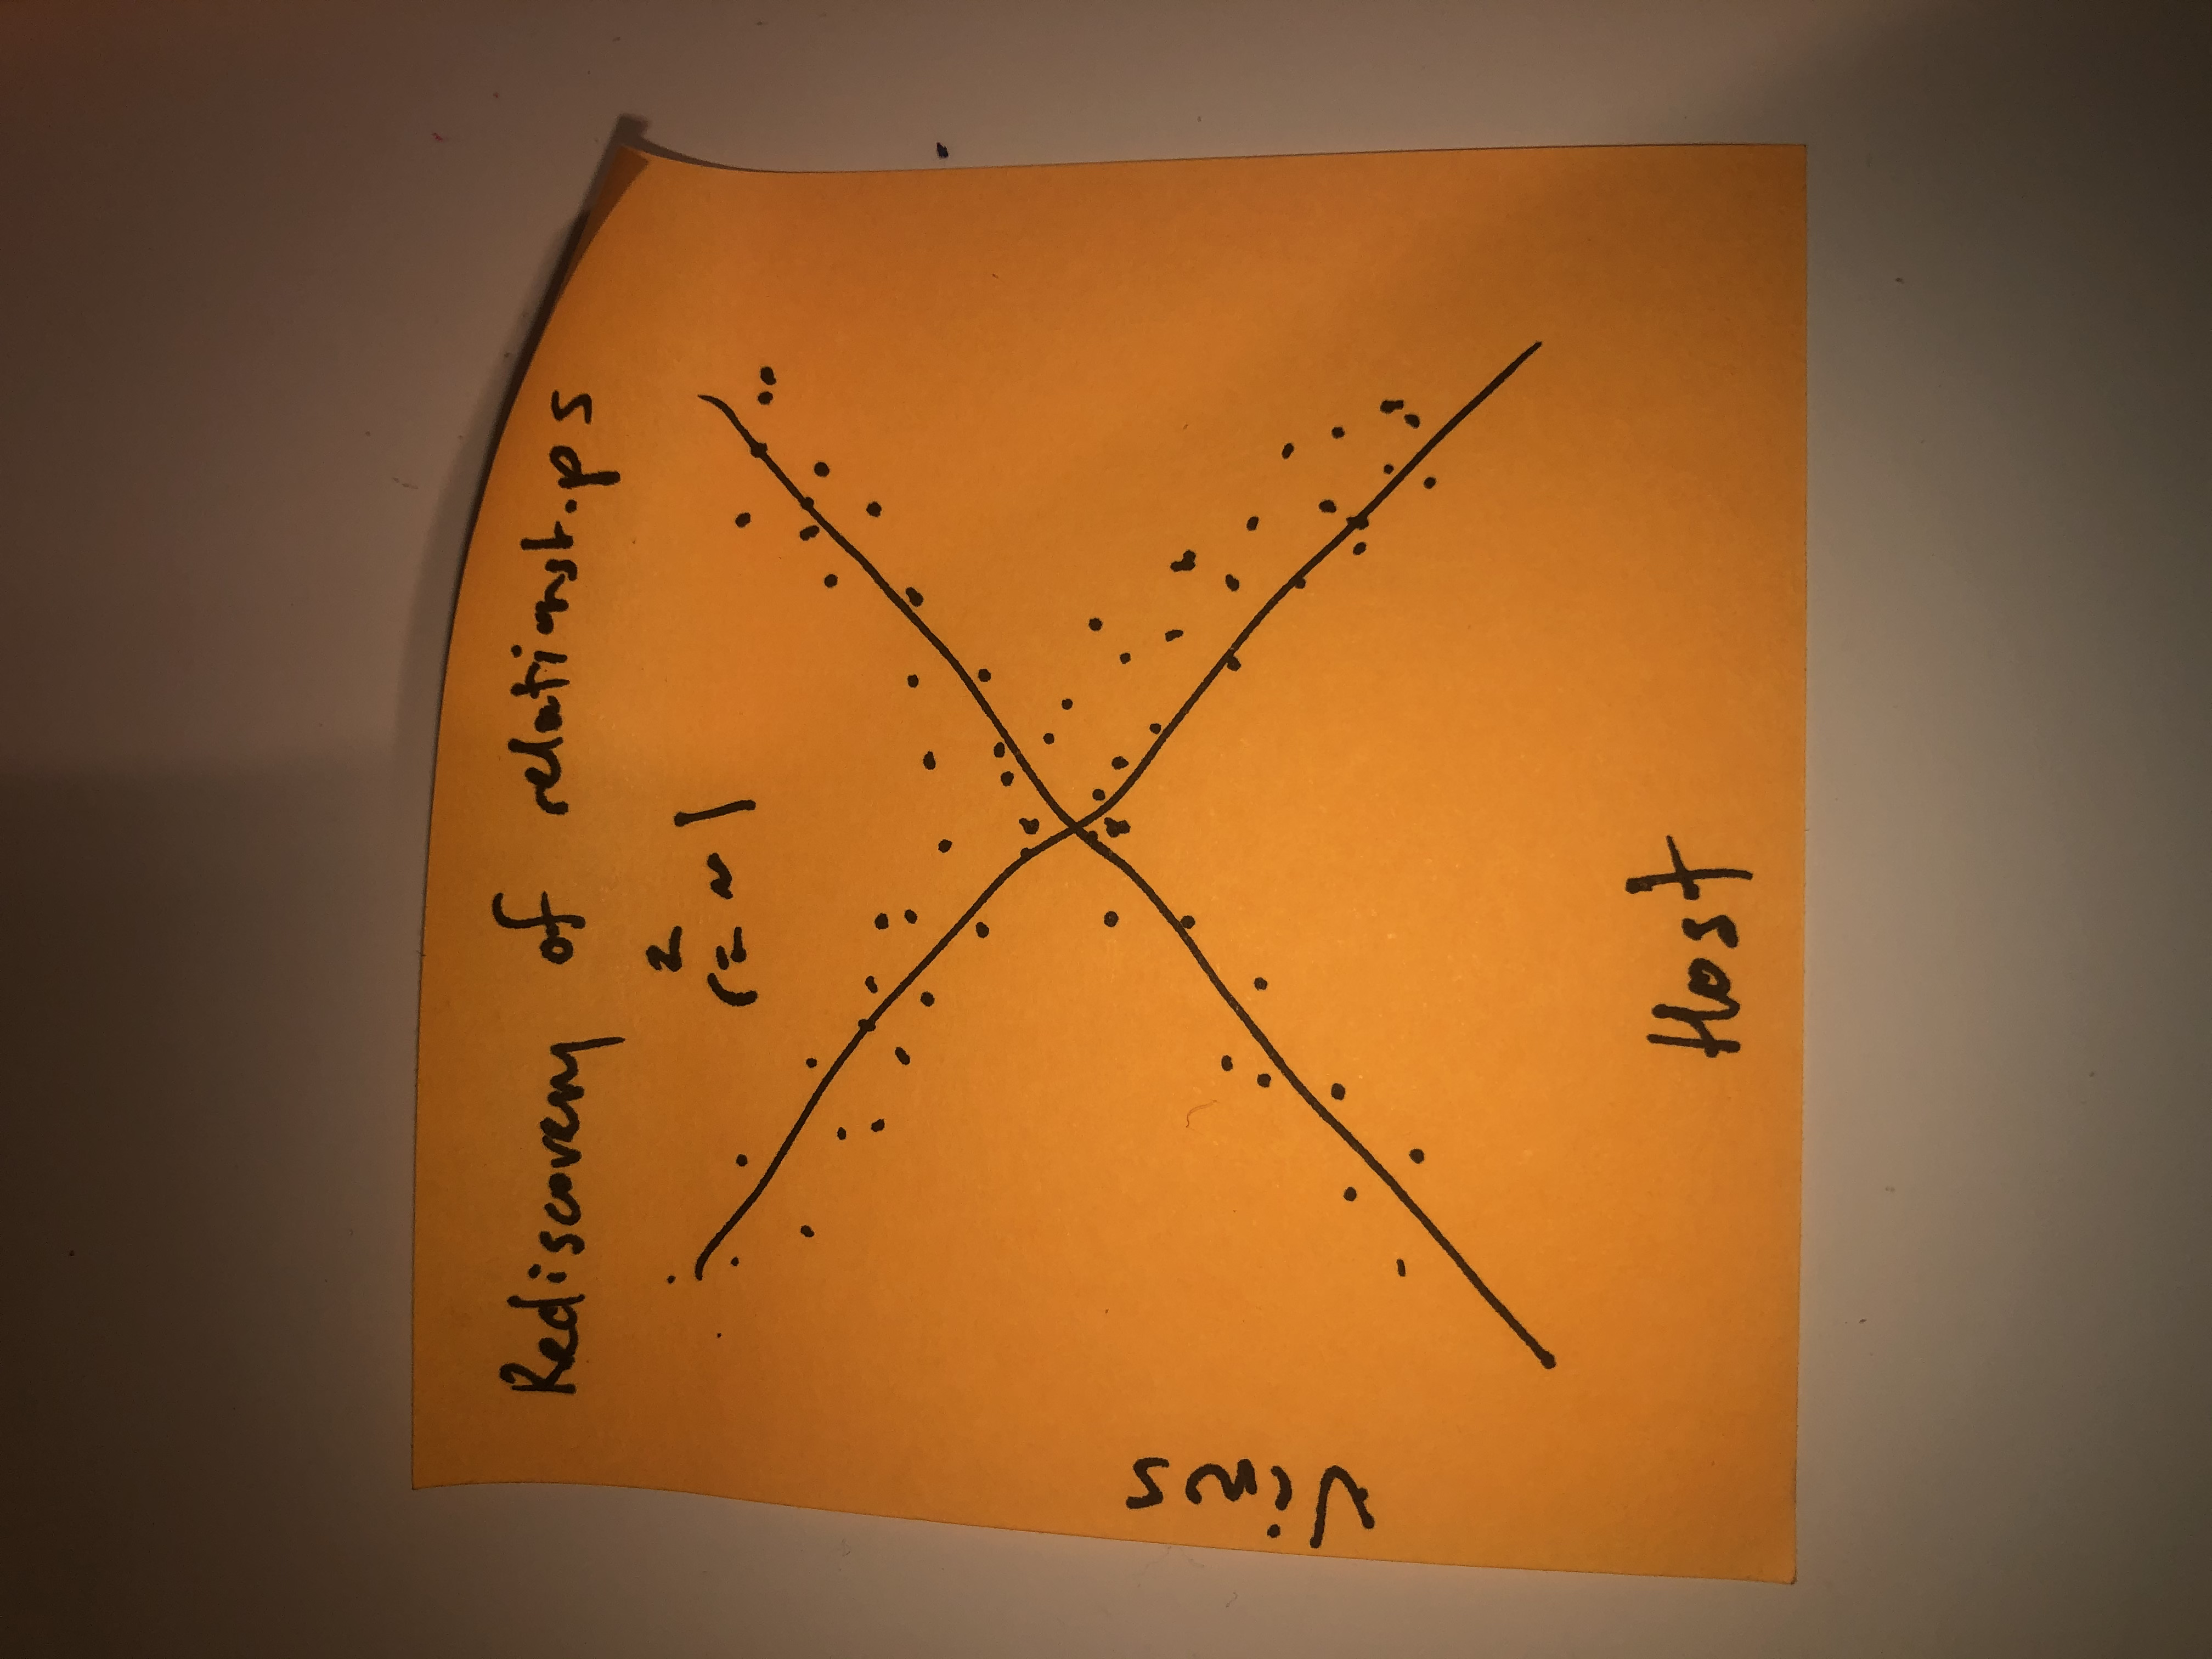 Rediscovery of relationships
r² = ~1
Virus
Host